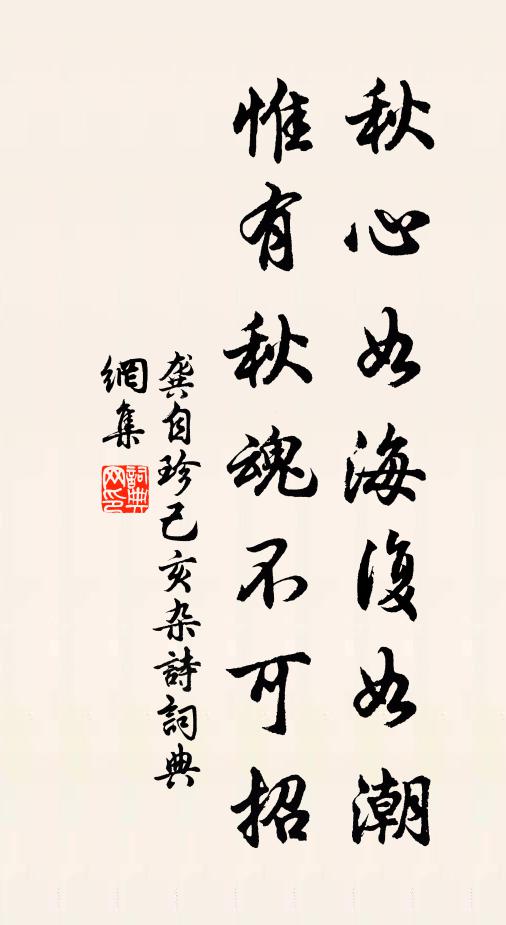 秋心如海復如潮
惟有秋魂不可招
龔自珍己亥杂詩詞典
網集
詞典
网印